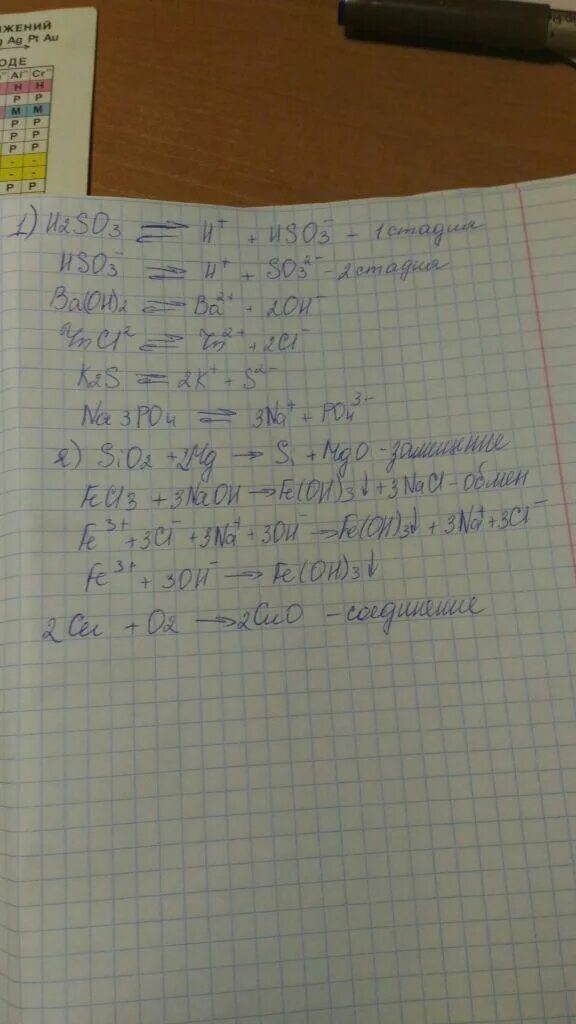 ЖЕНИЙ
Ag Pt Au
ОДЕ
Al³⁻ Cr³⁻
Н Н
Р Р
М М
Р Р
Р Р
Р Р
- -
- -
Р Р
1) H2SO3 ⇌ H⁺ + HSO3⁻ - 1 стадия
HSO3⁻ ⇌ H⁺ + SO3²⁻ - 2 стадия
Ba(OH)2 ⇌ Ba²⁺ + 2OH⁻
ZnCl² ⇌ Zn²⁺ + 2Cl⁻
K2S ⇌ 2K⁺ + S²⁻
Na3PO4 ⇌ 3Na⁺ + PO4³⁻
2) SiO2 + 2Mg → Si + MgO - замещение
FeCl3 + 3NaOH → Fe(OH)3↓ + 3NaCl - обмен
Fe³⁺ + 3Cl⁻ + 3Na⁺ + 3OH⁻ → Fe(OH)3↓ + 3Na⁺ + 3Cl⁻
Fe³⁺ + 3OH⁻ → Fe(OH)3↓
2Cu + O2 → 2CuO - соединение